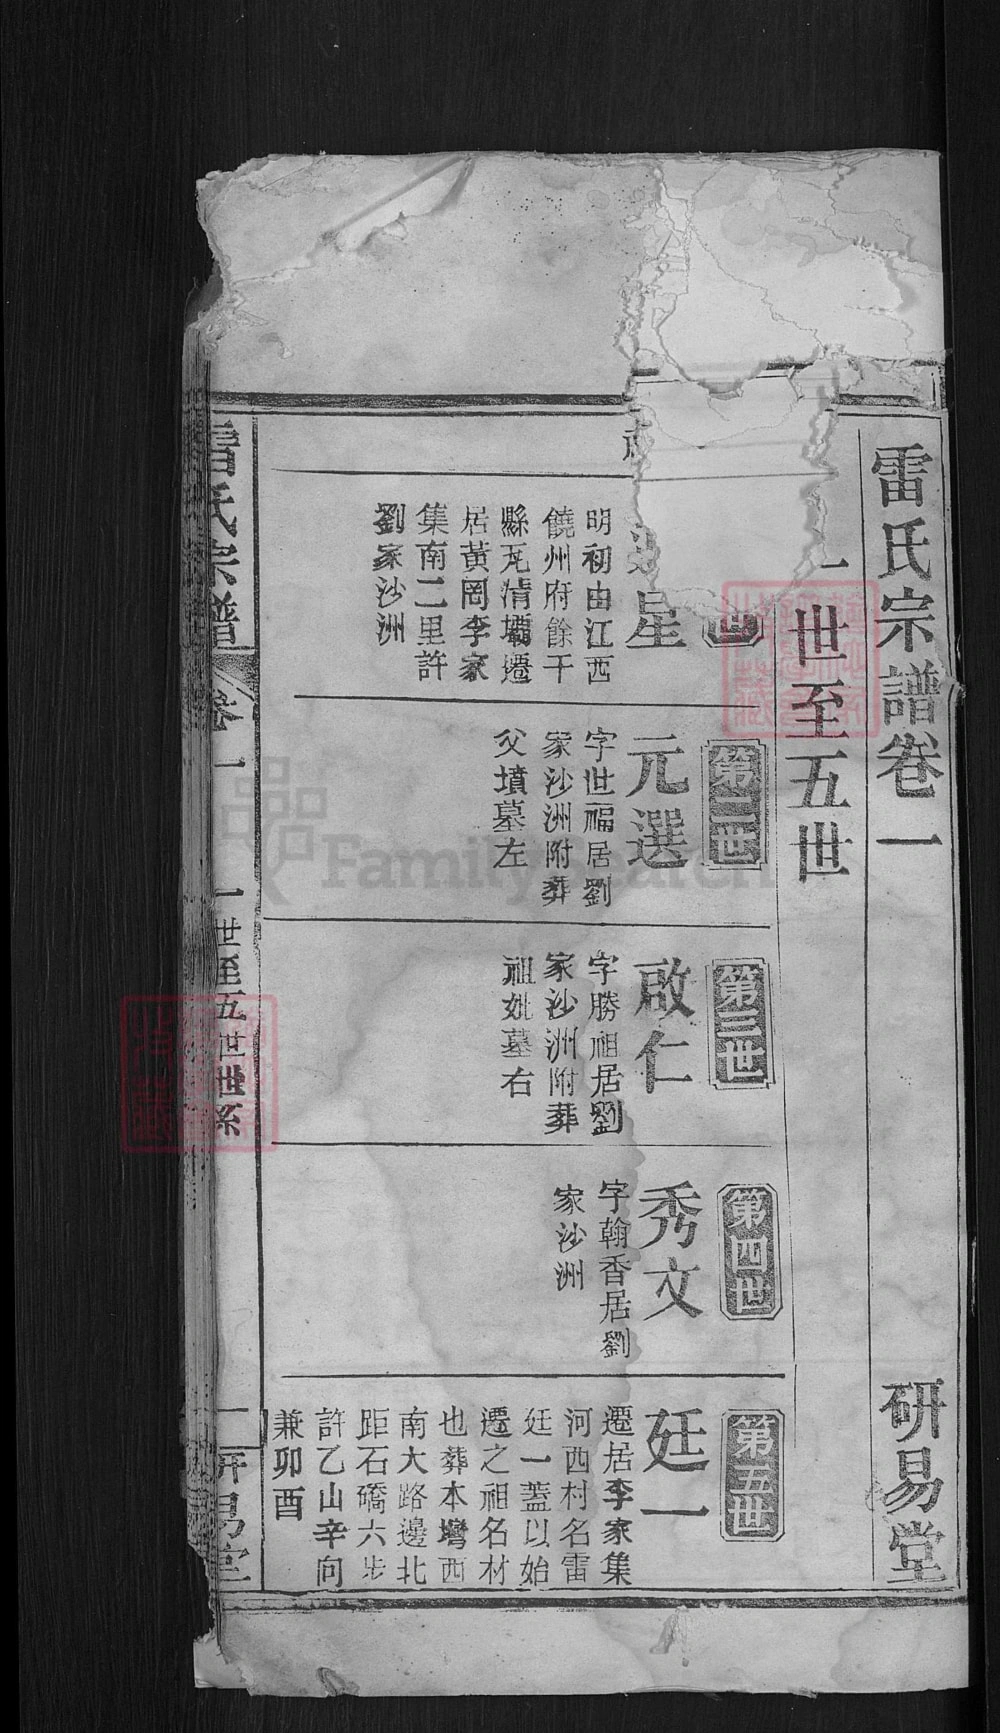 雷氏宗譜卷一
研易堂
一世至五世
世
星
明初由江西
饒州府餘干
縣瓦淸壩遷
居黃岡李家
集南二里許
劉家沙洲
第二世
元選
字世福居劉
家沙洲附葬
父墳墓左
第三世
啟仁
字勝祖居劉
家沙洲附葬
祖妣墓右
第四世
秀文
字翰香居劉
家沙洲
第五世
廷一
遷居李家集
河西村名雷
廷一蓋以始
遷之祖名村
也葬本塆西
南大路邊北
距石礄六步
許乙山辛向
兼卯酉
雷氏宗譜
卷一
一世至五世世系
一
研易堂
FamilySearch